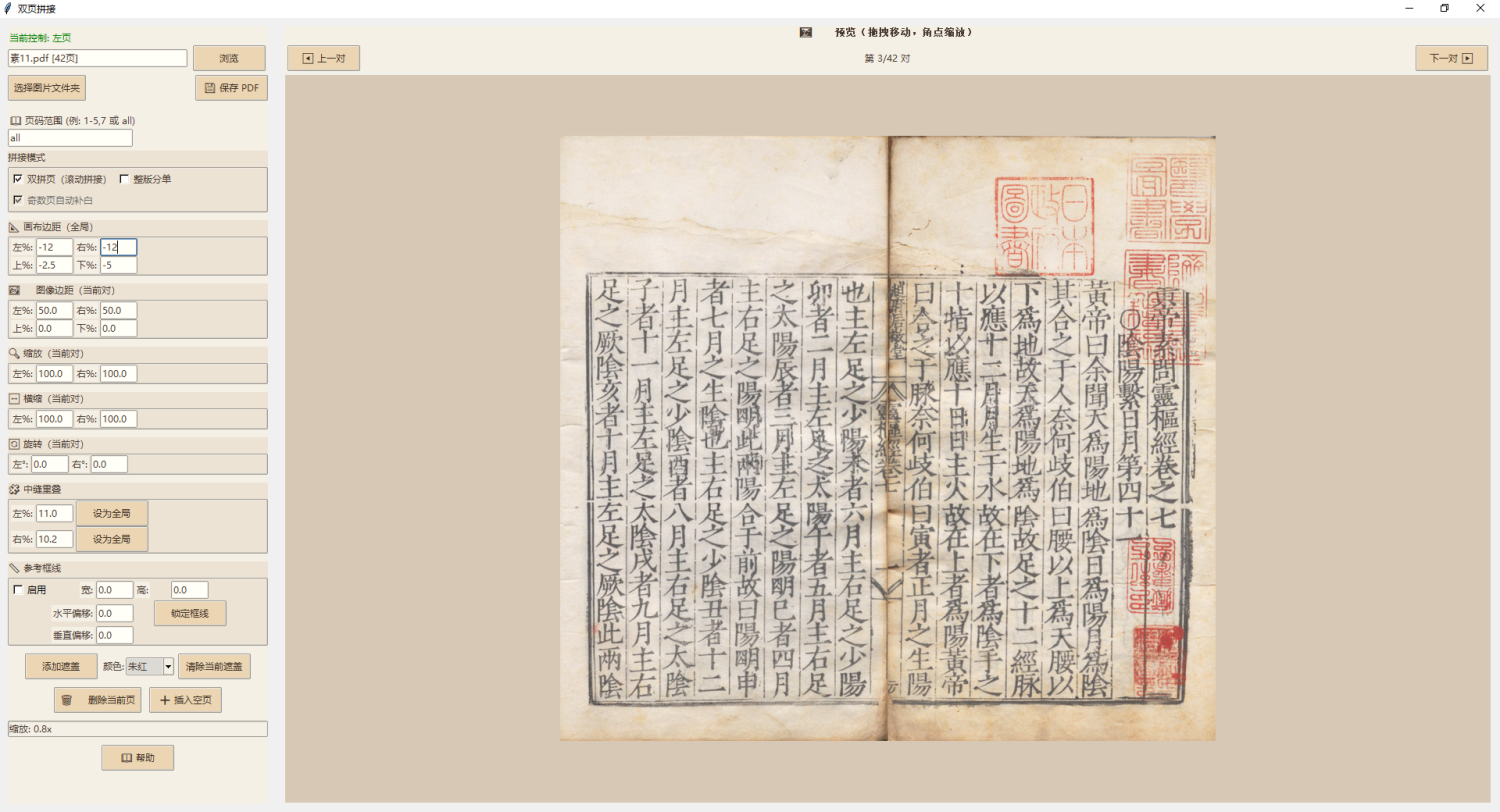 双页拼接
当前控制: 左页
素11.pdf [42页] 浏览
选择图片文件夹 保存 PDF
页码范围 (例: 1-5,7 或 all)
all
拼接模式
双拼页（滚动拼接） 整版分单
奇数页自动补白
画布边距（全局）
左%: -12 右%: -12
上%: -2.5 下%: -5
图像边距（当前对）
左%: 50.0 右%: 50.0
上%: 0.0 下%: 0.0
缩放（当前对）
左%: 100.0 右%: 100.0
横缩（当前对）
左%: 100.0 右%: 100.0
旋转（当前对）
左°: 0.0 右°: 0.0
中缝重叠
左%: 11.0 设为全局
右%: 10.2 设为全局
参考框线
启用 宽: 0.0 高: 0.0
水平偏移: 0.0 锁定框线
垂直偏移: 0.0
添加遮盖 颜色: 朱红 清除当前遮盖
删除当前页 插入空页
缩放: 0.8x
帮助
预览（拖拽移动，角点缩放）
上一对 第 3/42 对 下一对
日本政府圖書
帝素問靈樞經卷之七
陰陽繫日月第四十一
黃帝曰余聞天爲陽地爲陰日爲陽月爲陰
其合之于人奈何歧伯曰腰以上爲天腰以
下爲地故天爲陽地爲陰故足之十二經脉
以應十二月月生于水故在下者爲陰手之
十指以應十日日主火故在上者爲陽黃帝
曰合之于脉奈何歧伯曰寅者正月之生陽
也主左足之少陽未者六月主右足之少陽
卯者二月主左足之太陽午者五月主右足
之太陽辰者三月主左足之陽明巳者四月
主右足之陽明此兩陽合于前故曰陽明申
者七月之生陰也主右足之少陰丑者十二
月主左足之少陰酉者八月主右足之太陰
子者十一月主左足之太陰戌者九月主右
足之厥陰亥者十月主左足之厥陰此兩陰